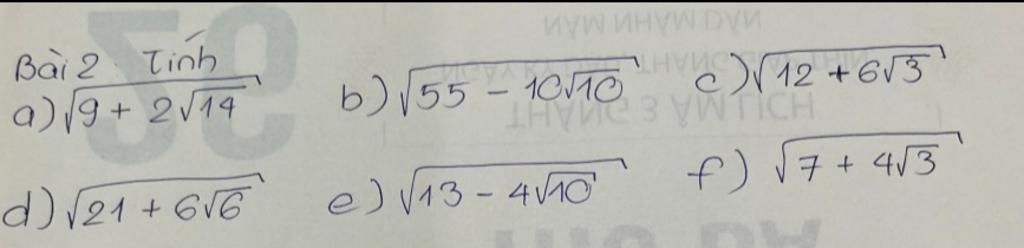 Bài 2 Tính
a) √(9 + 2√14) b) √(55 - 10√10) c) √(12 + 6√3)
d) √(21 + 6√6) e) √(13 - 4√10) f) √(7 + 4√3)